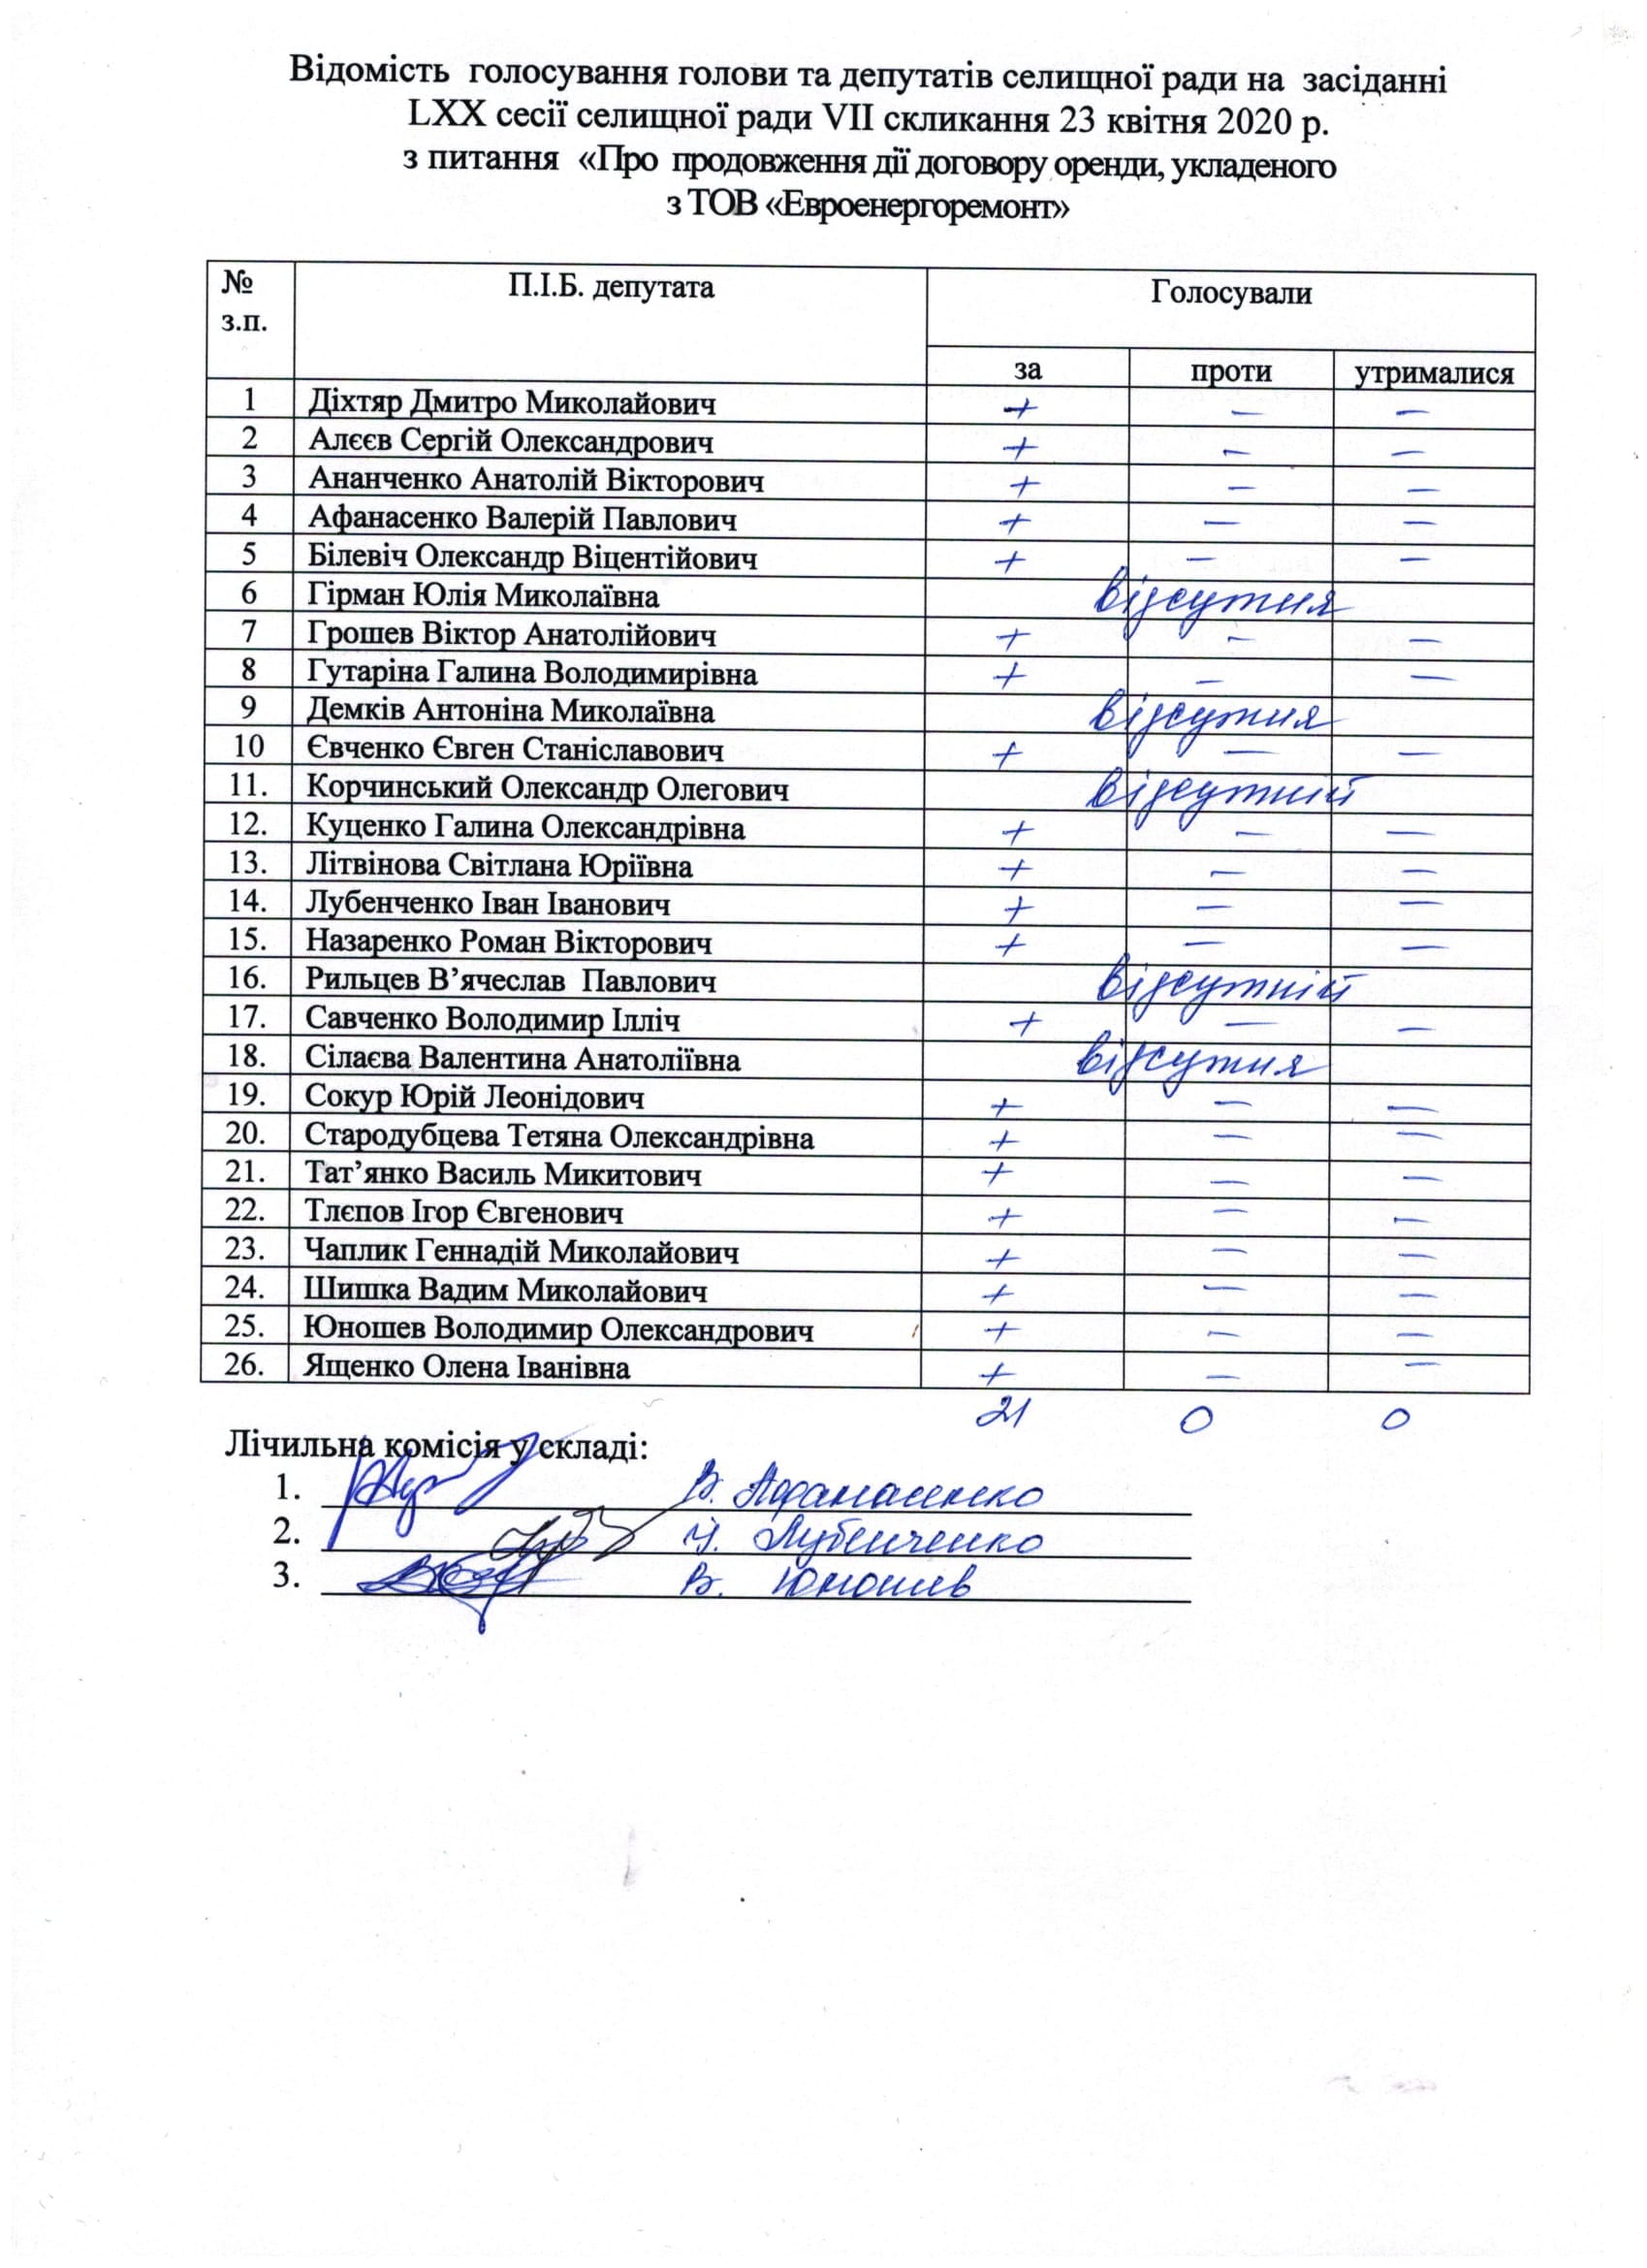 Відомість голосування голови та депутатів селищної ради на засіданні
LXX сесії селищної ради VII скликання 23 квітня 2020 р.
з питання «Про продовження дії договору оренди, укладеного
з ТОВ «Евроенергоремонт»
№ з.п. П.І.Б. депутата Голосували
за проти утрималися
1 Діхтяр Дмитро Миколайович + – –
2 Алєєв Сергій Олександрович + – –
3 Ананченко Анатолій Вікторович + – –
4 Афанасенко Валерій Павлович + – –
5 Білевіч Олександр Віцентійович + – –
6 Гірман Юлія Миколаївна відсутня
7 Грошев Віктор Анатолійович + – –
8 Гутаріна Галина Володимирівна + – –
9 Демків Антоніна Миколаївна відсутня
10 Євченко Євген Станіславович + – –
11. Корчинський Олександр Олегович відсутній
12. Куценко Галина Олександрівна + – –
13. Літвінова Світлана Юріївна + – –
14. Лубенченко Іван Іванович + – –
15. Назаренко Роман Вікторович + – –
16. Рильцев В’ячеслав Павлович відсутній
17. Савченко Володимир Ілліч + – –
18. Сілаєва Валентина Анатоліївна відсутня
19. Сокур Юрій Леонідович + – –
20. Стародубцева Тетяна Олександрівна + – –
21. Тат’янко Василь Микитович + – –
22. Тлєпов Ігор Євгенович + – –
23. Чаплик Геннадій Миколайович + – –
24. Шишка Вадим Миколайович + – –
25. Юношев Володимир Олександрович + – –
26. Ященко Олена Іванівна + – –
21 0 0
Лічильна комісія у складі:
1. В. Афанасенко
2. І. Лубенченко
3. В. Юношев